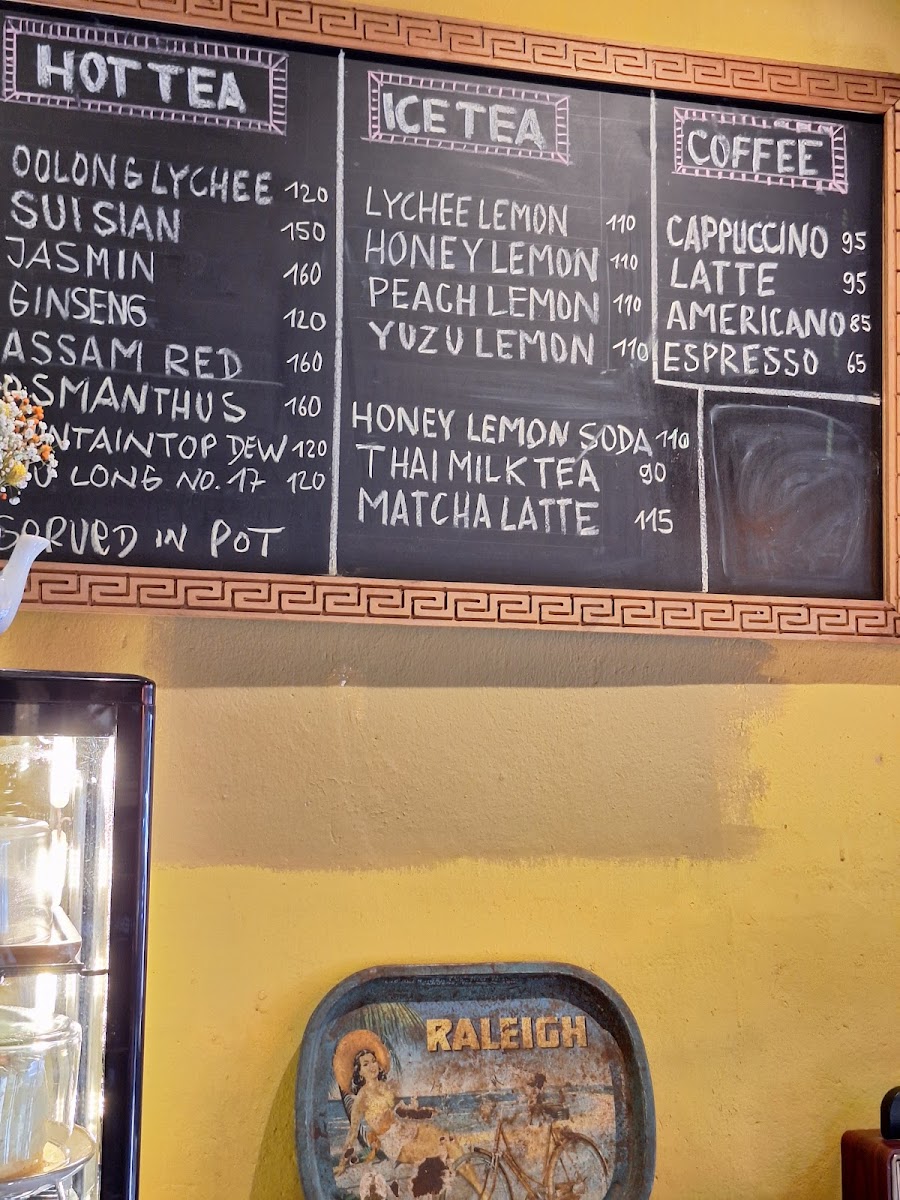 HOT TEA
OOLONG LYCHEE 120
SUI SIAN 150
JASMIN 160
GINSENG 120
ASSAM RED 160
SMANTHUS 160
NTAINTOP DEW 120
LONG NO. 17 120
SERVED IN POT
ICE TEA
LYCHEE LEMON 110
HONEY LEMON 110
PEACH LEMON 110
YUZU LEMON 110
HONEY LEMON SODA 110
THAI MILK TEA 90
MATCHA LATTE 115
COFFEE
CAPPUCCINO 95
LATTE 95
AMERICANO 85
ESPRESSO 65
RALEIGH